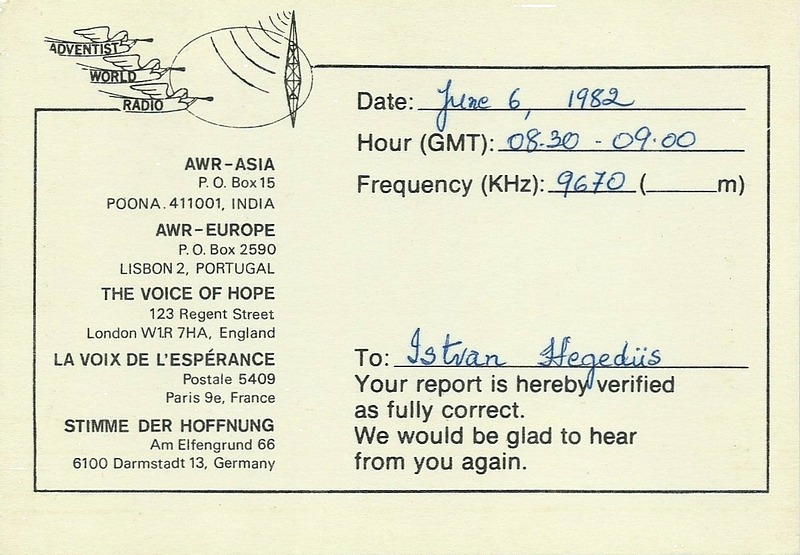 ADVENTIST
WORLD
RADIO
AWR-ASIA
P.O. Box 15
POONA. 411001, INDIA
AWR-EUROPE
P.O. Box 2590
LISBON 2, PORTUGAL
THE VOICE OF HOPE
123 Regent Street
London W1R 7HA, England
LA VOIX DE L'ESPÉRANCE
Postale 5409
Paris 9e, France
STIMME DER HOFFNUNG
Am Elfengrund 66
6100 Darmstadt 13, Germany
Date: June 6, 1982
Hour (GMT): 08.30 - 09.00
Frequency (KHz): 9670 (______m)
To: Istvan Hegedüs
Your report is hereby verified
as fully correct.
We would be glad to hear
from you again.